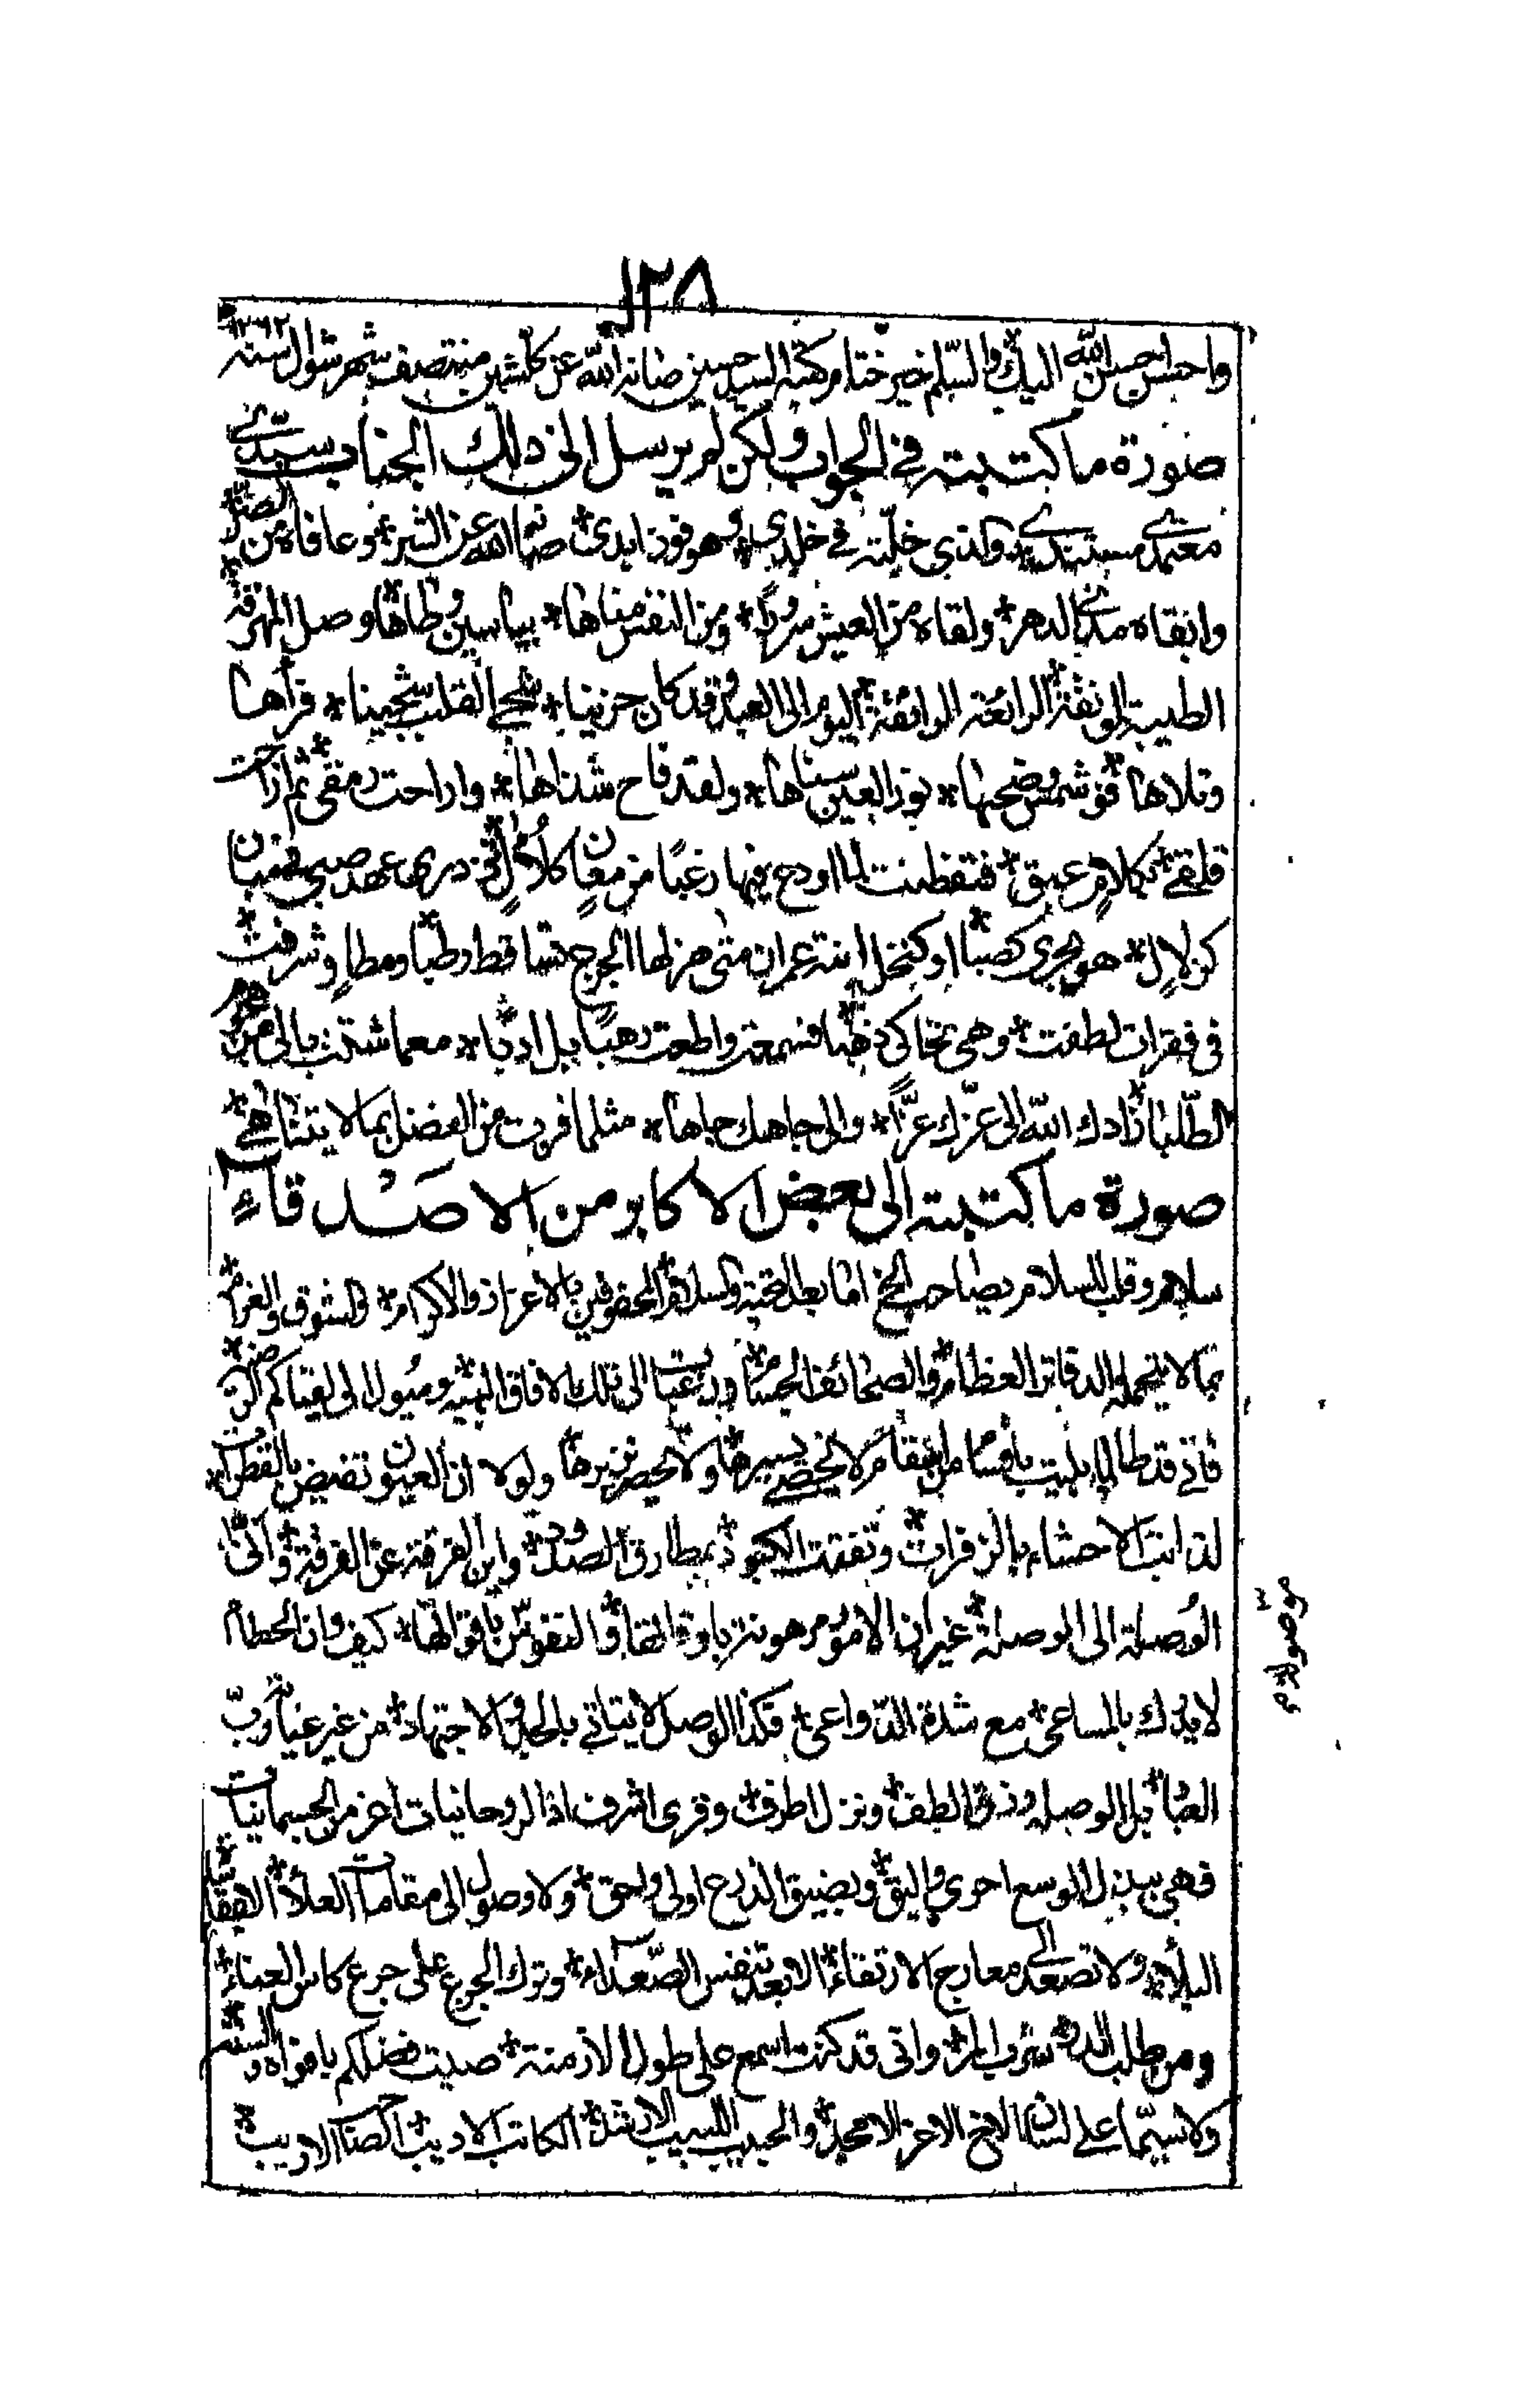 ١٢٨
واحسن احسن الله اليك والسلم خير ختام كتبه السيد حسين صانه الله عن كل شين منتصف شهر شوال سنه ١٢٦٢
صورة ما كتبته في الجواب ولكن لم يرسل الى ذلك الجناب سيدى
معتمدى سندى والذى خلّته في خلدى وهو فوز ابدى صانه الله عن الشر وعافاه من الضر
وابقاه مدى الدهر ولقاه من العيش سرورًا ومن النفس مناها بياسين وطاها وصل المهرقة
الطيبة المونقة الرائعة الرائقة اليوم الى العبد وقد كان حزينا شجى القلب سجينا قرأها
وتلاها فهو شمس وضحيها نور العين سناها ولقد فاح شذاها واراحت رمقى ثم ازاحت
قلقى بكلام عبق فتفظنت لما اودع فيها رغبًا من معانٍ كلآلٍ في درى عهد صبى فتبيان
كزلالٍ هو يجرى كصبا او كنخل ابنة عمران متى هزلها الجزع تساقط رطبا ومطاوٍ شرفت
في فقرات لطفت وهى تحاكى ذهبًا فسمعت واطعت رهبًا بل ادبًا معما شتت بالى من
الطلبا زادك الله الى عزك عزًّا والى جاهك جاها مثلما فزت من الفضل بما لا يتناهى
صورة ما كتبته الى بعض الاكابر من الاصدقاء
سلام وقلب السلام يصاحب الخ اما بعد التحية والسلام المحفوفين بالاعزاز والاكرام والشوق والغرام
مما لا يتحمله الدفاتر العظام والصحائف الجسام ورغبات الى تلك الافاق اليمنيه وميول الى لقياكم
فانى قد طال ما بليت باقسام من سقام لا يحصى يسيرها ولا يحصر نزيرها ولولا ان العيون تفيض بالقطرات
لذابت الاحشاء بالزفرات وتفتت الكبود بمطارق الصدود واين الفرقة عن الفرقة وانى
الوصلة الى الوصلة غير ان الامور مرهونة باوقاتها والنفوس باقواتها كيف وان الحطام
لا يدرك بالمساعى مع شدة الدواعى فكذا الوصل لا يتاتى بالجد والاجتهاد من غير عناية رب
العباد بل الوصل رزق الطف ونزل اطرف وقرى اشرف اذ الروحانيات اعز من الجسمانيات
فهى ببذل الوسع احرى واليق وبضيق الذرع اولى واحق ولا وصول الى مقامات العلاء الا بمقاسات
البلاء ولا تصعد الى معارج الارتقاء الا بعد تنفس الصعداء وترك الجزع على جرع كاس العناء
ومن طلب الدر شرب المر وانى قد كنت اسمع على طول الازمنة صيت فضلكم بافواه والسنة
ولا سيما على لسان الاخ الاعز الامجد والحبيب اللبيب الارشد الكاتب الاديب الاريب